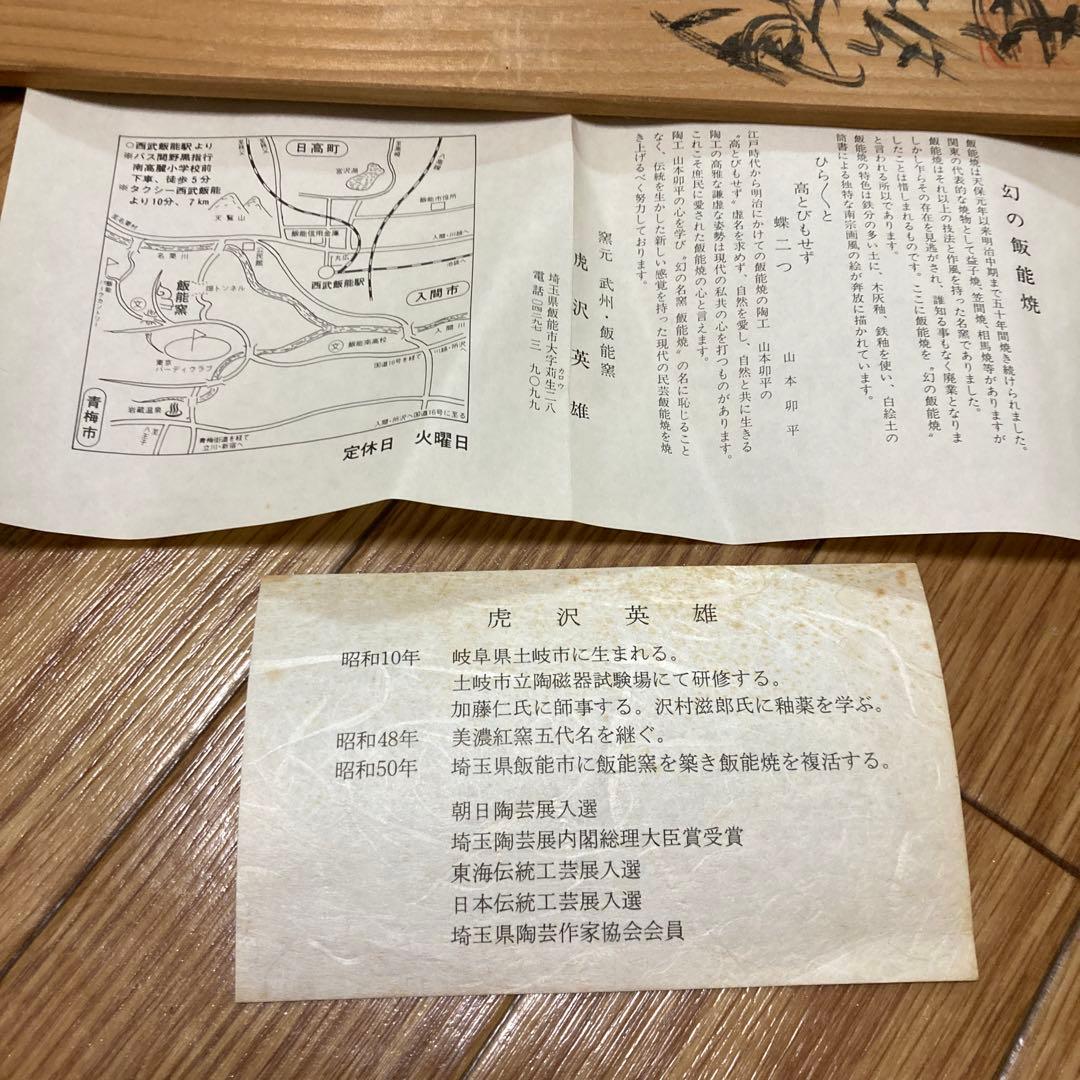 幻の飯能焼
飯能焼は天保元年以来明治中期まで五十年間焼き続けられました。
関東の代表的な焼物として益子焼、笠間焼、相馬焼等がありますが
飯能焼はそれ以上の技法と作風を持った名窯でありました。
しかし乍らその存在を見逃がされ、誰知る事もなく廃業となりま
したことは惜しまれるものです。ここに飯能焼を〝幻の飯能焼〟
と言われる所以であります。
飯能焼の特色は鉄分の多い土に、木灰釉、鉄釉を使い、白絵土の
筒書による独特な南宗画風の絵が奔放に描かれています。
ひらくと
高とびもせず
蝶二つ
山本卯平
江戸時代から明治にかけての飯能焼の陶工 山本卯平の
〝高とびもせず〟虚名を求めず、自然を愛し、自然と共に生きる
陶工の高雅な謙虚な姿勢は現代の私共の心を打つものがあります。
これこそ庶民に愛された飯能焼の心と言えます。
陶工 山本卯平の心を学び〝幻の名窯 飯能焼〟の名に恥じること
なく、伝統を生かした新しい感覚を持った現代の民芸飯能焼を焼
き上げるべく努力しております。
窯元 武州・飯能窯
虎沢英雄
埼玉県飯能市大字苅生二八
カロウ
電話〇四二九七 三 九〇九九
○西武飯能駅より
※バス間野黒指行
南高麗小学校前
下車、徒歩5分
※タクシー西武飯能
より10分、7km
日高町
宮沢湖
天覧山
飯能市役所
飯能信用金庫
丸広
西武飯能駅
入間・川越へ
池袋へ
至名栗村
名栗川
公民館
畑トンネル
飯能窯
文
入間市
入間川
文 飯能南高校
川越・所沢へ
国道16号を経て
東京
バーディクラブ
岩蔵温泉
青梅市
至
八王子
青梅街道を経て
立川・新宿へ
入間・所沢へ国道16号に至る
定休日 火曜日
虎沢英雄
昭和10年 岐阜県土岐市に生まれる。
土岐市立陶磁器試験場にて研修する。
加藤仁氏に師事する。沢村滋郎氏に釉薬を学ぶ。
昭和48年 美濃紅窯五代名を継ぐ。
昭和50年 埼玉県飯能市に飯能窯を築き飯能焼を復活する。
朝日陶芸展入選
埼玉陶芸展内閣総理大臣賞受賞
東海伝統工芸展入選
日本伝統工芸展入選
埼玉県陶芸作家協会会員